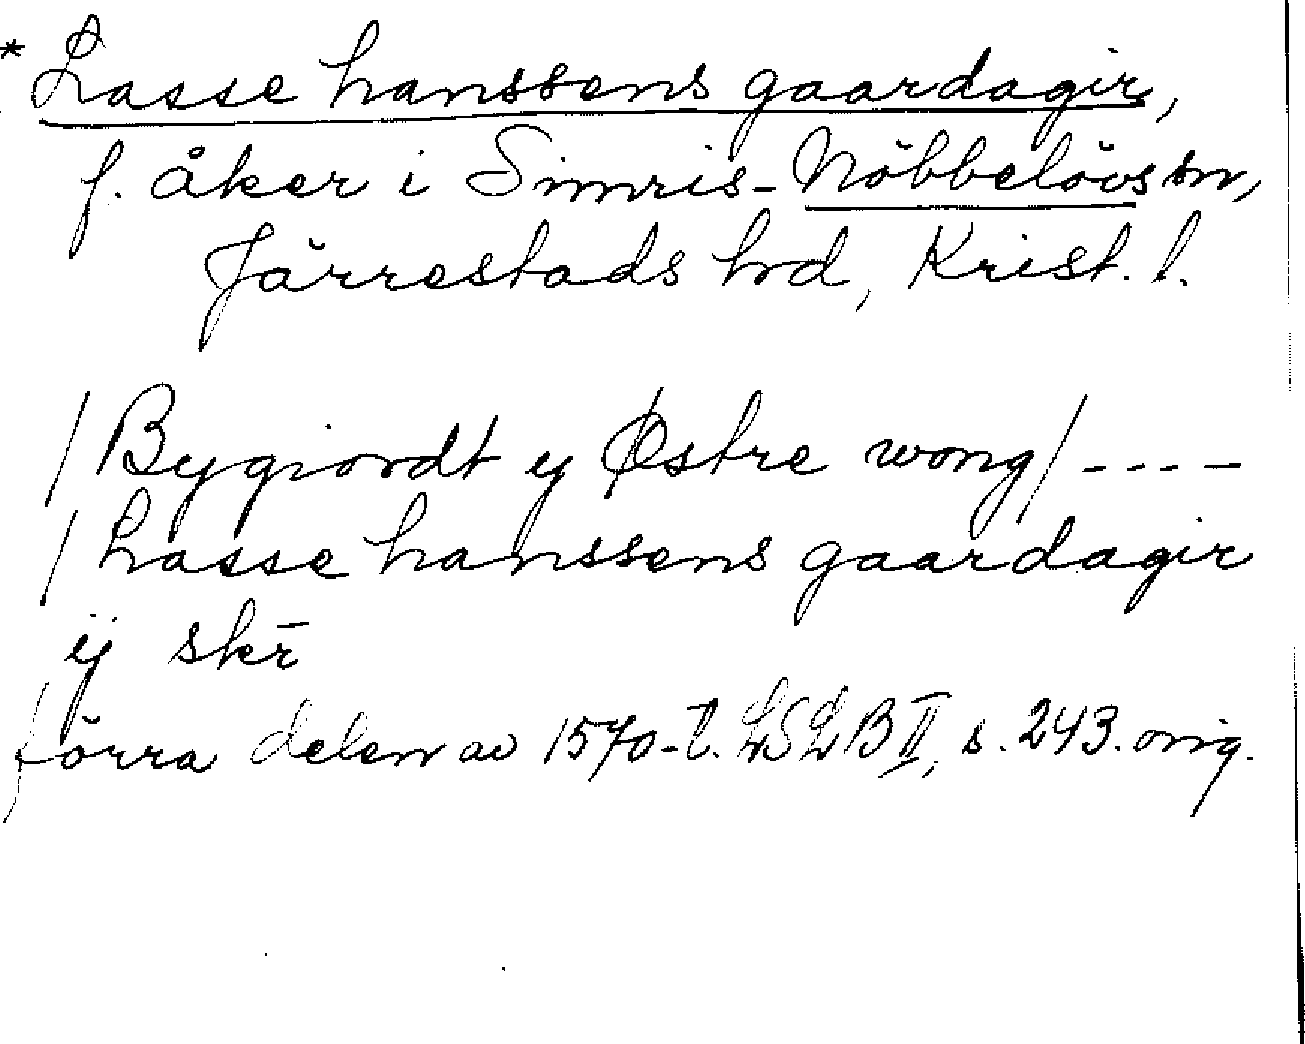 * Lasse hanssens gaardagir,
f. åker i Simris-Nöbbelövs sn,
Järrestads hrd, Krist. l.
/Bygiordt y Østre wong/ ----
/Lasse hanssens gaardagir
ij skr̄
förra delen av 1570-t. LSLB II, s. 243. orig.